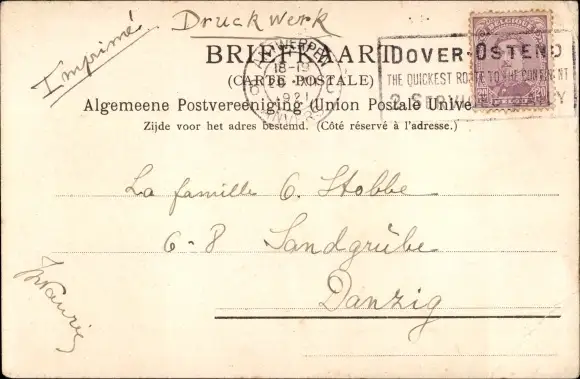 Imprimé
Druckwerk
BRIEFKAART
(CARTE POSTALE)
Algemeene Postvereeniging (Union Postale Unive
Zijde voor het adres bestemd. (Côté réservé à l'adresse.)
ANTWERPEN
18-19
1921
ANVERS
DOVER-OSTEND
THE QUICKEST ROUTE TO THE CONTINENT
3 SERVIC Y
BELGIQUE
La famille C. Stobbe
6-8 Sandgrübe
Danzig